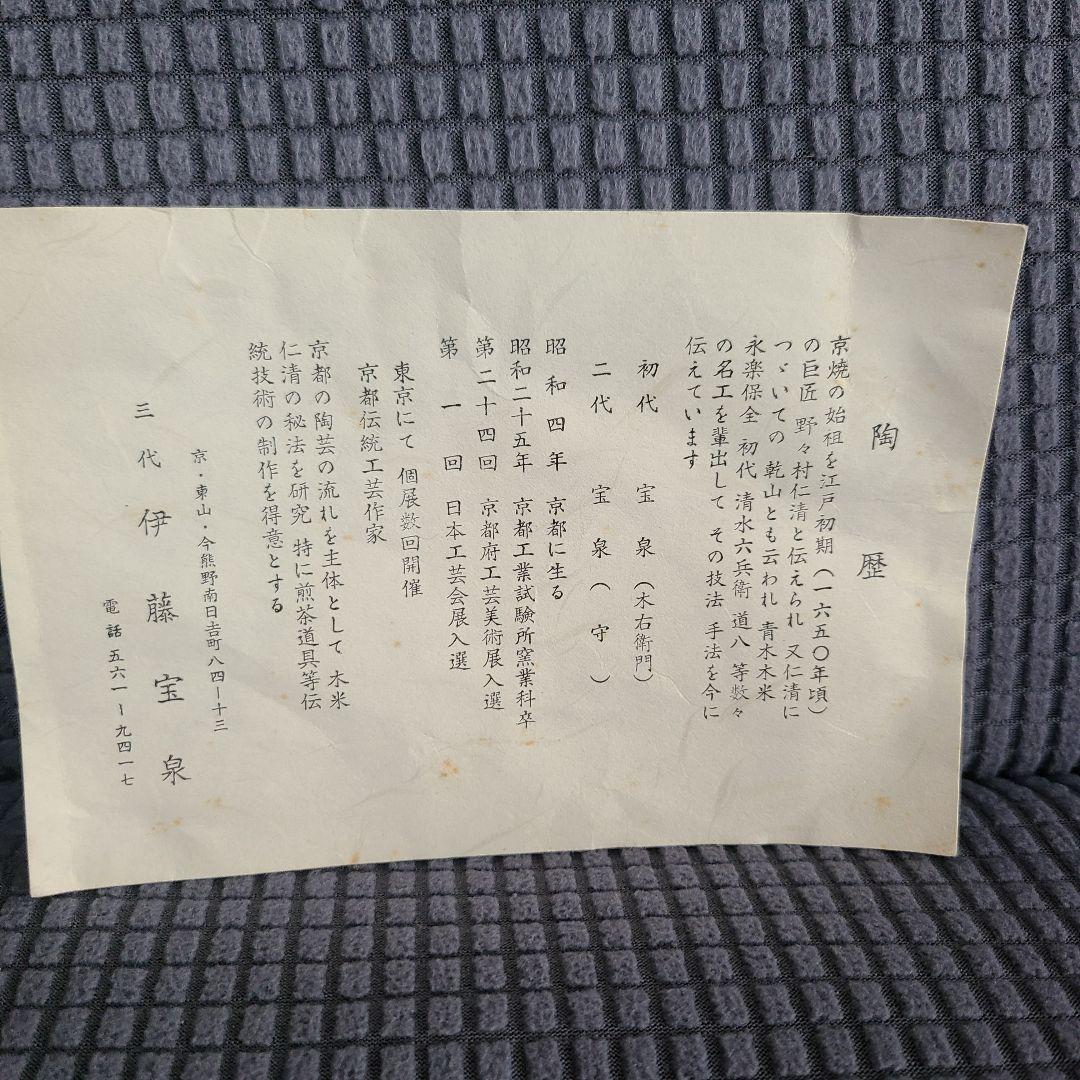 陶歴
京焼の始祖を江戸初期(一六五〇年頃)
の巨匠 野々村仁清と伝えられ 又仁清に
つゞいての 乾山とも云われ 青木木米
永楽保全 初代 清水六兵衛 道八 等数々
の名工を輩出して その技法 手法を今に
伝えています
初代 宝泉(木右衛門)
二代 宝泉(守)
昭和四年 京都に生る
昭和二十五年 京都工業試験所窯業科卒
第二十四回 京都府工芸美術展入選
第一回 日本工芸会展入選
東京にて 個展数回開催
京都伝統工芸作家
京都の陶芸の流れを主体として 木米
仁清の秘法を研究 特に煎茶道具等伝
統技術の制作を得意とする
京・東山・今熊野南日吉町八四ー十三
三代 伊藤宝泉
電話 五六一ー九四一七